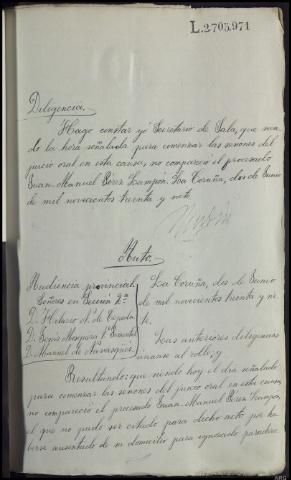 L.2705.971
Diligencia.
Hago constar yó Secretario de Sala, que sien-
do la hora señalada para comenzar las sesiones del
juicio oral en esta causa, no compareció el procesado
Juan Manuel Pérez Lampón. La Coruña, dos de Junio
de mil novecientos treinta y siete.
Auto.
Audiencia provincial
Señores en Sección 2ª
D. Hilario Nº. de Cepeda
D. José Mosquera
D. Manuel de
La Coruña, dos de Junio
de mil novecientos treinta y sie-
te.
Las anteriores diligencias
únanse al rollo; y
Resultando: que siendo hoy el dia señalado
para comenzar las sesiones del juicio oral en esta causa,
no compareció el procesado Juan Manuel Pérez Lampón,
el que no pudo ser citado para dicho acto por ha-
berse ausentado de su domicilio para ignorado paradero